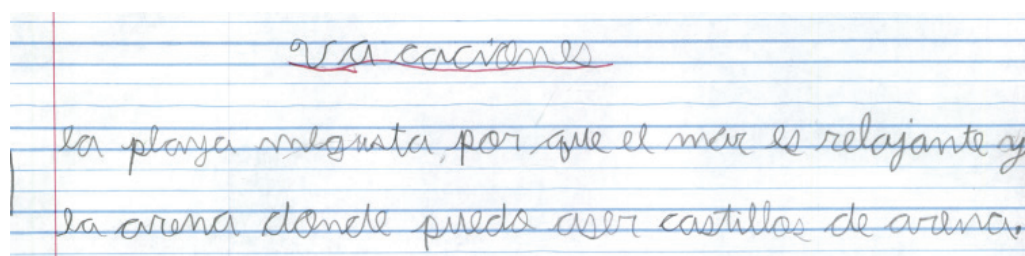 Vacaciones
la playa megusta, por que el mar es relajante y
la arena donde puedo aser castillos de arena.